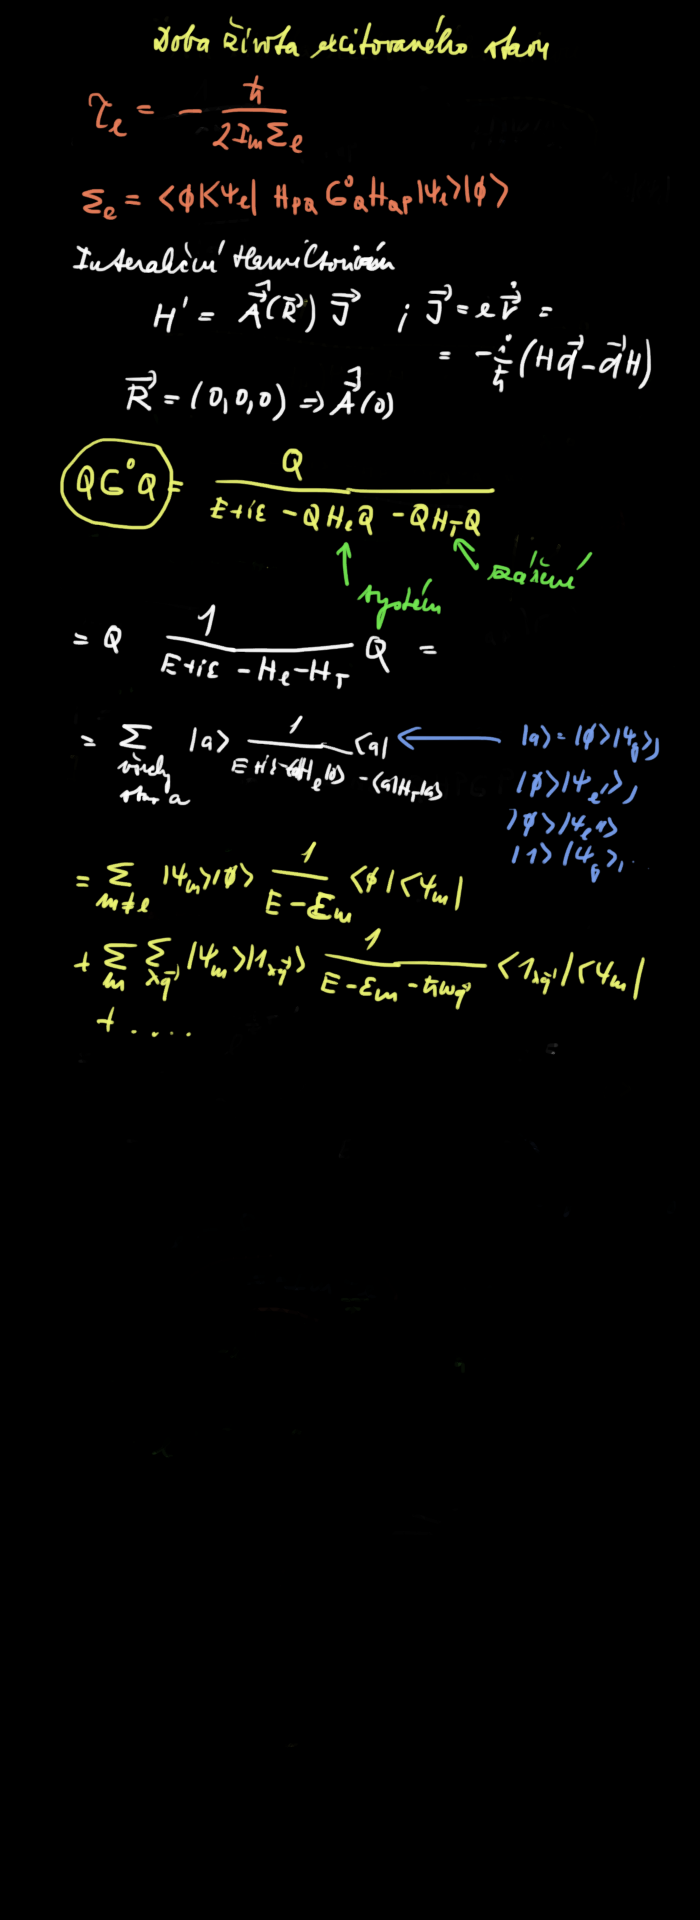 Doba života excitovaného stavu
τ_e = - ħ / (2 Im Σ_e)
Σ_e = <ϕ|<ψ_e| H_PQ G^0_Q H_QP |ψ_e>|ϕ>
Interakční Hamiltonián
H' = \hat{\vec{A}}(\vec{R}) \vec{J} ; \vec{J} = e \dot{\vec{r}} =
= -\frac{i}{ħ} (H\vec{d} - \vec{d}H)
\vec{R} = (0,0,0) ⇒ \hat{\vec{A}}(0)
QG^0Q = Q / (E+iε - QH_eQ - QH_TQ)
systém
záření
= Q 1 / (E+iε - H_e - H_T) Q =
= Σ |a> 1 / (E+iε - <a|H_e|a> - <a|H_T|a>) <a|
všechny
stavy a
|a> = |ϕ>|ψ_g>,
|ϕ>|ψ_e'>,
|ϕ>|ψ_e''>
|1>|ψ_g>, ..
= Σ_{m≠e} |ψ_m>|ϕ> 1 / (E - ε_m) <ϕ|<ψ_m|
+ Σ_m Σ_{λ\vec{q}} |ψ_m>|1_{λ\vec{q}}> 1 / (E - ε_m - ħω_{\vec{q}}) <1_{λ\vec{q}}|<ψ_m|
+ ....